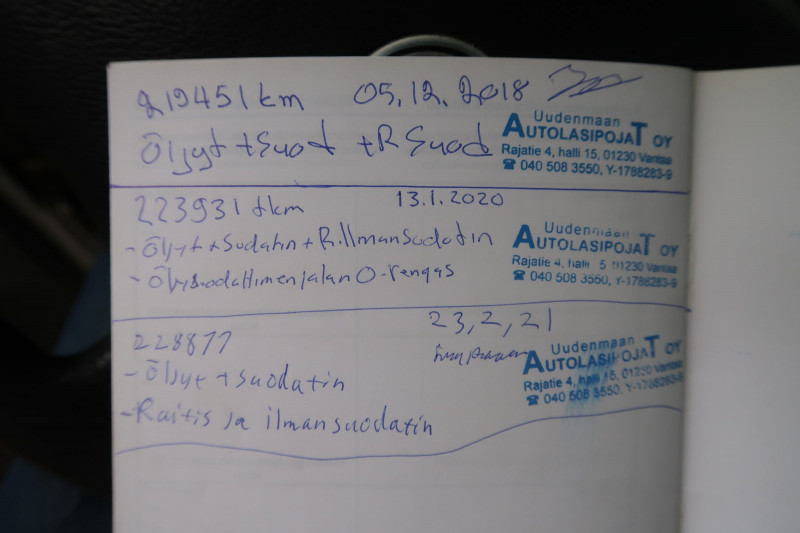 219451 km 05.12.2018
Öljyt + Suod + R Suod
Uudenmaan
AUTOLASIPOJAT OY
Rajatie 4, halli 15, 01230 Vantaa
☎ 040 508 3550, Y-1788283-9
223931 km 13.1.2020
- Öljyt + Sudatin + R.ilmansudatin
- Öljysuodattimenjalan O-rengas
Uudenmaan
AUTOLASIPOJAT OY
Rajatie 4, halli 15 01230 Vantaa
☎ 040 508 3550, Y-1788283-9
228877 23,2,21
- Öljyt + suodatin
- Raitis ja ilmansuodatin
Uudenmaan
AUTOLASIPOJAT OY
Rajatie 4, halli 15, 01230 Vantaa
☎ 040 508 3550, Y-1788283-9